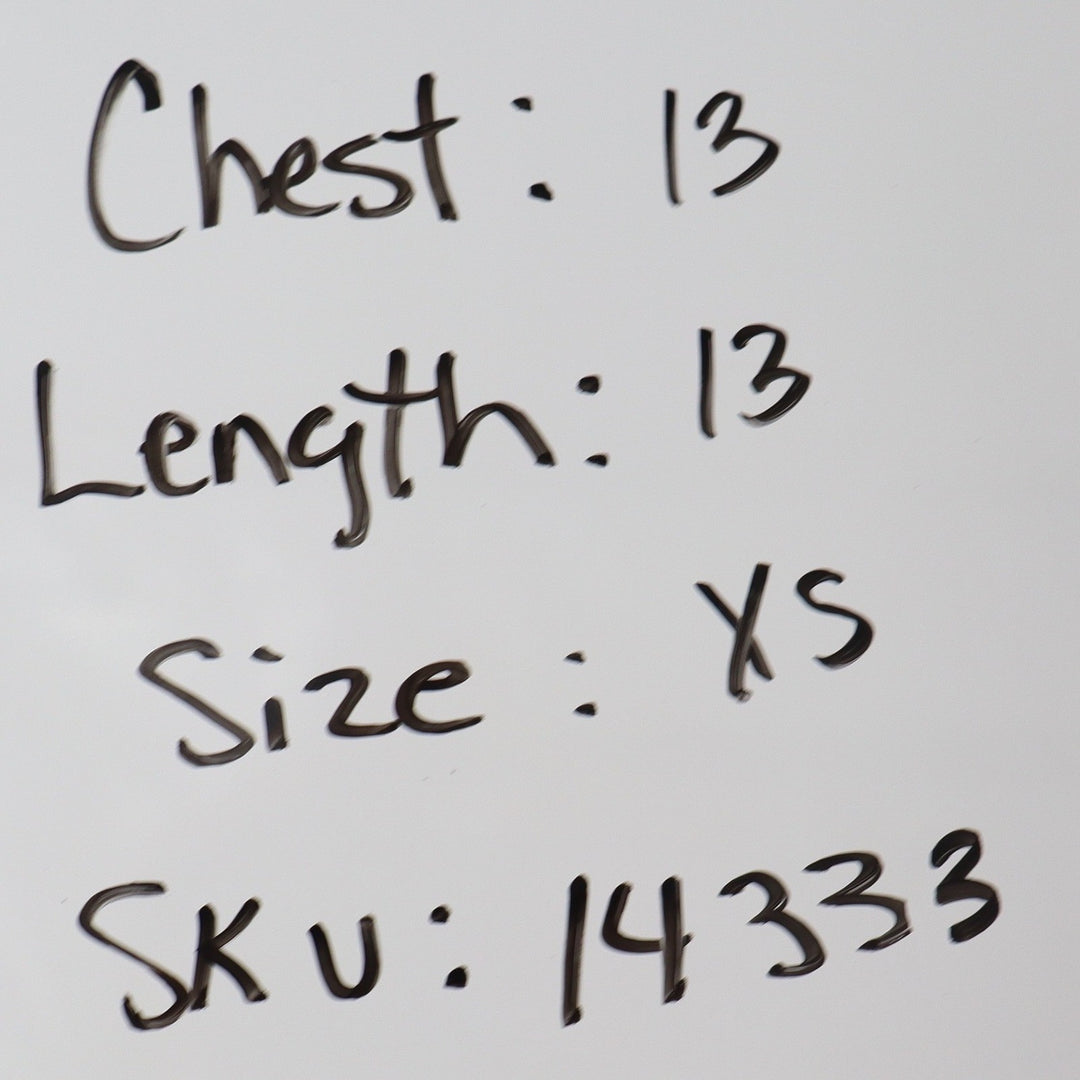 Chest: 13
Length: 13
Size: XS
SKU: 14333